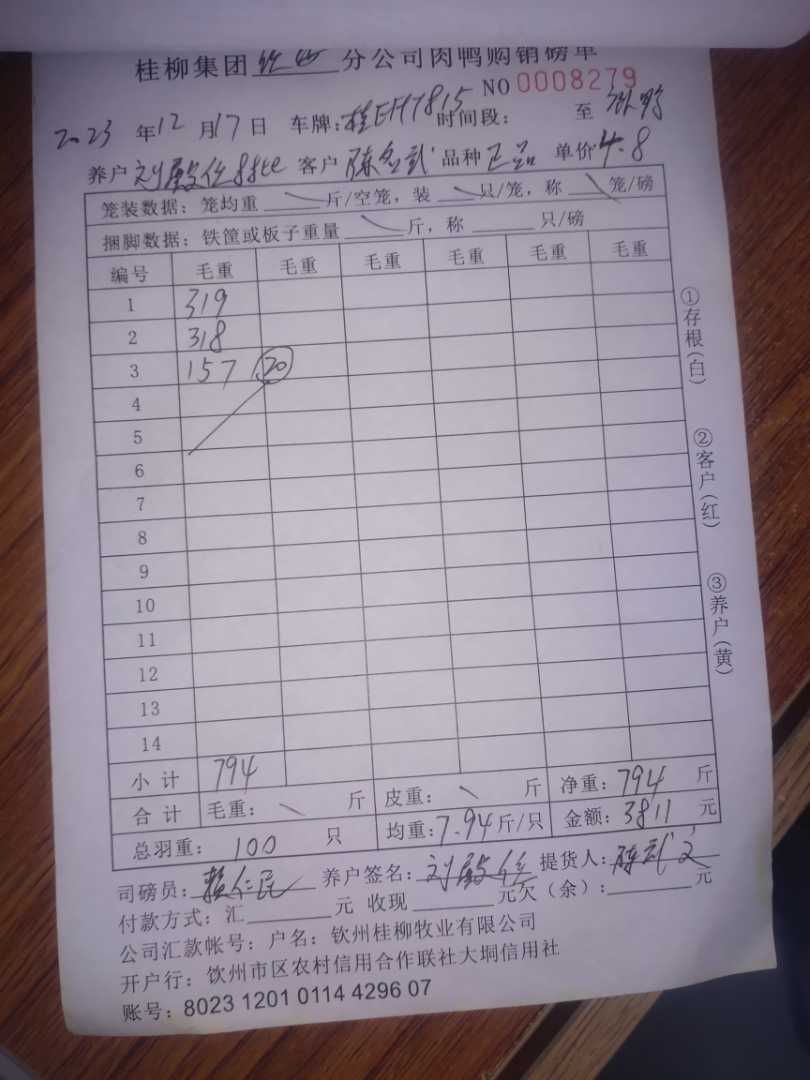 桂柳集团 钦州 分公司肉鸭购销磅单
NO 0008279
2023 年 12 月 17 日 车牌:桂EH7815 时间段: 至
养户 刘殿仕 客户 陈 武 品种 正品 单价 4.8
笼装数据: 笼均重 斤/空笼, 装 只/笼, 称 笼/磅
捆脚数据: 铁筐或板子重量 斤, 称 只/磅
编号 毛重 毛重 毛重 毛重 毛重 毛重
1 319
2 318
3 157 20
4
5
6
7
8
9
10
11
12
13
14
小计 794
合计 毛重: 斤 皮重: 斤 净重: 794 斤
总羽重: 100 只 均重: 7.94 斤/只 金额: 3811 元
司磅员: 仁民 养户签名: 刘殿仕 提货人: 陈武
付款方式: 汇 元 收现 元欠(余): 元
公司汇款帐号: 户名: 钦州桂柳牧业有限公司
开户行: 饮州市区农村信用合作联社大垌信用社
账号: 8023 1201 0114 4296 07
①存根(白)
②客户(红)
③养户(黄)